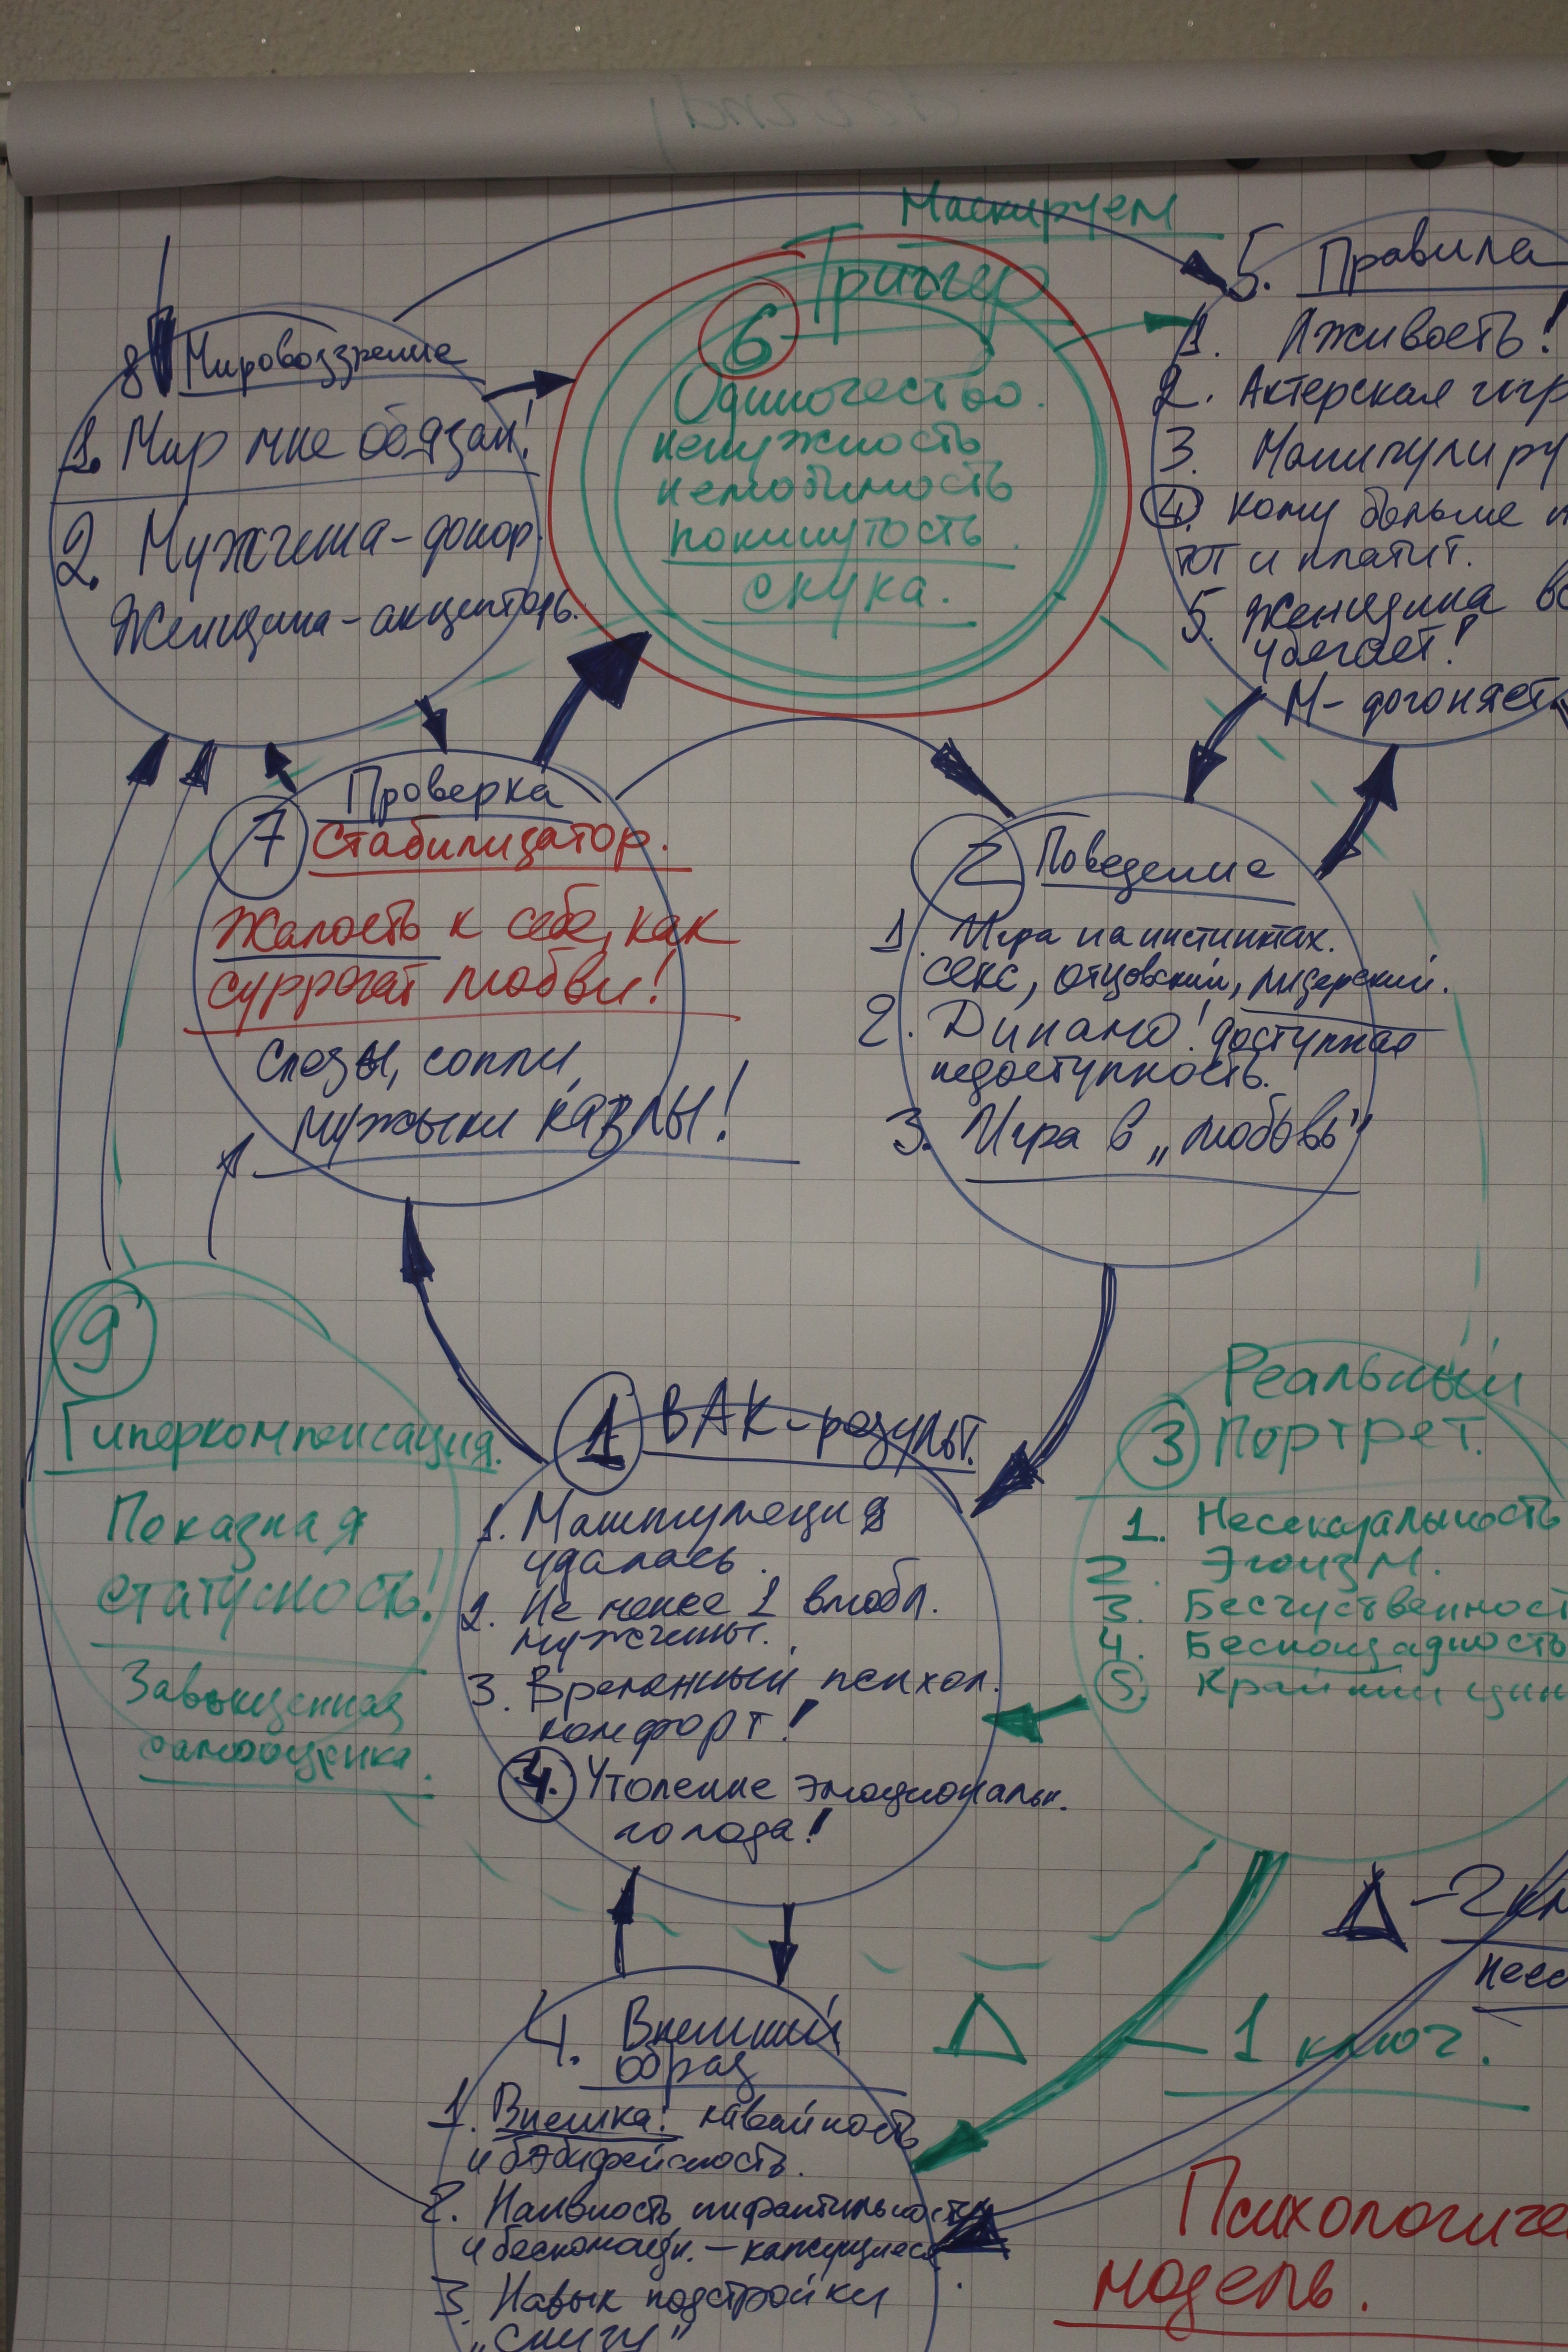 Маскируем
Триггер
6
Одиночество.
ненужность
нелюбимость
покинутость.
скука.
8 Мировоззрение
1. Мир мне обязан!
2. Мужчина-донор.
Женщина-акцептор.
5. Правила
1. Лживость!
2. Актерская игр
3. Манипулиру
4. Кому больше
ют и платит.
5. Женщина
убегает!
М- догоняет.
Проверка
7 Стабилизатор.
Жалость к себе, как
суррогат любви!
Слезы, сопли,
мужыки казлы!
2 Поведение
1. Игра на инстинктах.
секс, отцовский, лидерский.
2. Динамо! доступная
недоступность.
3. Игра в „любовь"
9
Гиперкомпенсация.
Показная
статусность!
Завышенная
самооценка.
1 ВАК-результ.
1. Манипуляция
удалась.
2. Не менее 1 влюбл.
мужчины.
3. Временный психол.
комфорт!
4. Утоление эмоциональн.
голода!
Реальный
3 Портрет.
1. Несексуальность
2. Эгоизм.
3. Бесчуственност
4. Беспощадность
5. Крайний цин
Δ - 2 кл
несо
Δ - 1 ключ.
4. Внешний
образ
1. Внешка: кавайность
и бэбифейсность.
2. Наивность инфантильность
и беспомощн. – кажущиеся
3. Навык подстройки
„снизу"
Психологиче
модель.